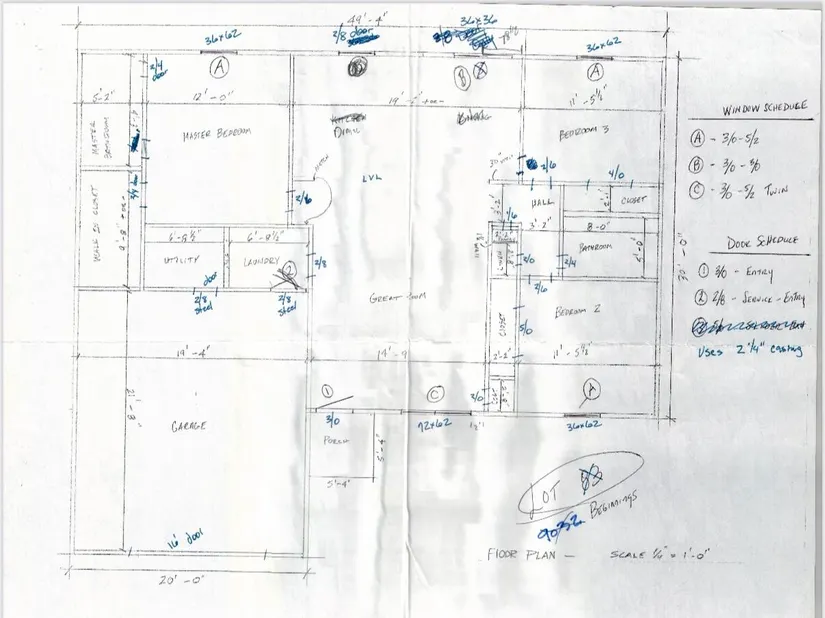 49'-4"
36x62
2/8 door
36x36
36x62
A
B
A
2/4
door
5'-2"
12'-0"
11'-5½"
MASTER
BATHROOM
MASTER BEDROOM
KITCHEN
DINING
BEDROOM 3
WINDOW SCHEDULE
A - 3/0-5/2
B - 3/0 -
C - 3/0 -5/2 TWIN
LVL
2/6
4/0
2/8
HALL
CLOSET
3'-2"
8'-0"
WALK IN CLOSET
6'-8½"
6'-8½"
UTILITY
LAUNDRY
2
2/8
LINEN
2/0
2/4
BATHROOM
30'-0"
DOOR SCHEDULE
1 3/0 - ENTRY
2 2/8 - SERVICE - ENTRY
USES 2 1/4" casing
door
2/8
steel
2/8
steel
2/6
GREAT ROOM
CLOSET
5/0
BEDROOM 2
19'-4"
19'-9
2'-2"
11'-5½"
21'-8"
1
C
A
3/0
3/0
72x62
36x62
GARAGE
PORCH
5'-4"
5'-4"
LOT
9032 BEGINNINGS
16' door
FLOOR PLAN — SCALE ¼" = 1'-0"
20'-0"